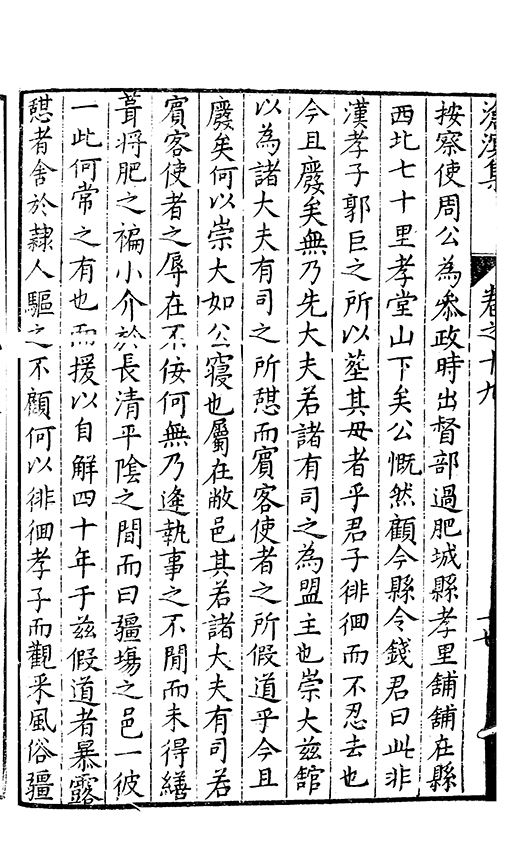 滄溟集 卷之十九
按察使周公為叅政時出督部過肥城縣孝里舖舖在縣
西北七十里孝堂山下矣公慨然顧今縣令錢君曰此非
漢孝子郭巨之所以塟其母者乎君子徘徊而不忍去也
今且廢矣無乃先大夫若諸有司之為盟主也崇大兹舘
以為諸大夫有司之所憇而賔客使者之所假道乎今且
廢矣何以崇大如公寢也屬在敝邑其若諸大夫有司若
賔客使者之辱在不佞何無乃逢執事之不閒而未得繕
葺將肥之褊小介於長清平隂之間而曰疆埸之邑一彼
一此何常之有也而援以自解四十年于兹假道者暴露
憇者舍於隷人驅之不顧何以徘徊孝子而觀采風俗疆